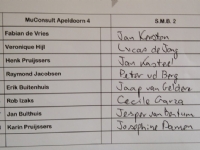 MuConsult Apeldoorn 4 S.M.B. 2
Fabian de Vries Jan Kersten
Veronique Hijl Lucas de Jong
Henk Pruijssers Jan Kastel
Raymond Jacobsen Peter vd Berg
Erik Buitenhuis Jaap van Gelder
Rob Izaks Cecile Garza
Jan Bulthuis Jesper van
Karin Pruijssers Josephine Damen